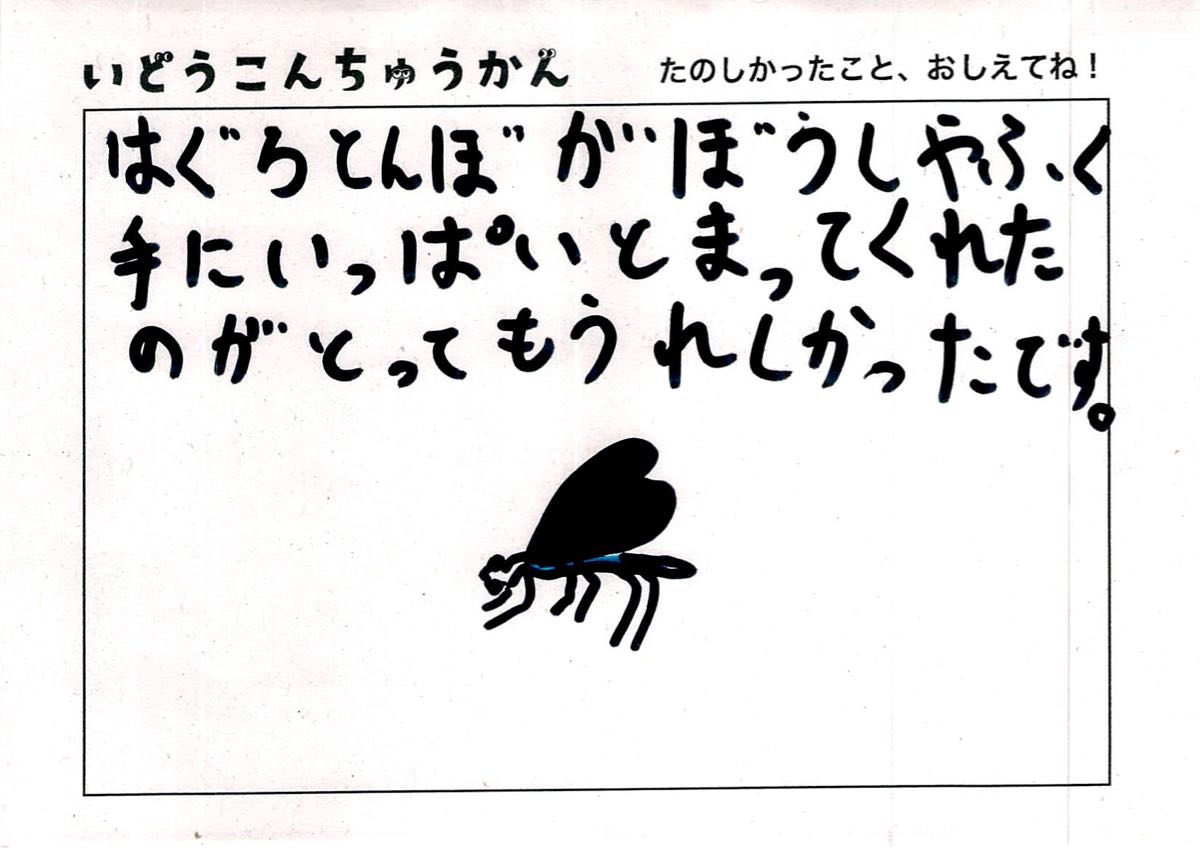 いどうこんちゅうかん
たのしかったこと、おしえてね！
はぐろとんぼがぼうしやふく
手にいっぱいとまってくれた
のがとってもうれしかったです。